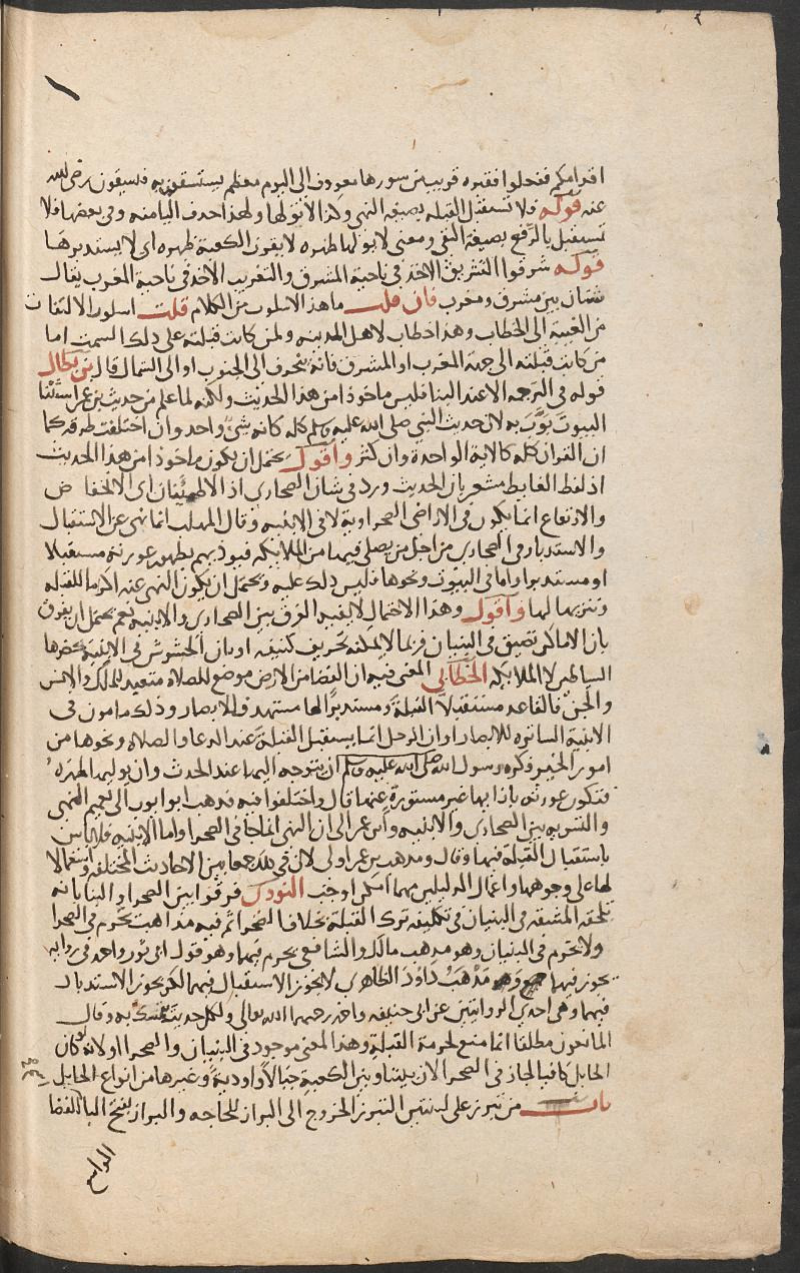 اقدامكم ففعلوا فقبره قريب من سورها معروف الى اليوم معظم يستسقون به فيسقون رضى الله
عنه قوله فلا تستقبل القبلة بصيغة النهى وكذا لا يولها ولهذا حذف اليا منه وفى بعضها فلا
تستقبل بالرفع بصيغة النفى ومعنى لا يولها ظهره لا يقون الكعبة ظهره اى لا يستدبرها
قوله شرقوا التشريق الاخذ فى ناحية المشرق والتغريب الاخذ فى ناحية المغرب يقال
شتان بين مشرق ومغرب فان قلت ما هذا الاسلوب من الكلام قلت اسلوب الالتفات
من الغيبة الى الخطاب وهذا خطاب لاهل المدينه ولمن كانت قبلته على ذلك السمت اما
من كانت قبلته الى جهة المغرب او المشرق فانه ينحرف الى الجنوب او الى الشمال قال بن بطال
قوله فى الترجمه الا عند البنا فليس ماخوذا من هذا الحديث ولكنه لما علم من حديث بن عمر استثنا
البيوت بوب به لان حديث النبى صلى الله عليه وسلم كله كانه شئ واحد وان اختلفت طرقه كما
ان القران كله كالاية الواحدة وان كثر واقول يحتمل ان يكون ماخوذا من هذا الحديث
اذ لفظ الغايط مشعر بان الحديث ورد فى شان الصحارى اذ الاطمئنان اى الانخفاض
والارتفاع انما يكون فى الاراضى الصحراوية لا فى الابنيه وقال المهلب انما نهى عن الاستقبال
والاستدبار فى الصحارى من اجل من يصلى فيها من الملايكه فيوذيهم بظهور عورته مستقبلا
او مستدبرا واما فى البيوت ونحوها فليس ذلك عليه ويحتمل ان يكون النهى عنه اكراما للقبله
وتنزيها لها واقول وهذا الاحتمال لا يفيد الفرق بين الصحارى والابنيه نعم يحتمل ان يفرق
بان الاماكن تضيق فى البنيان فربما لا يمكنه تحريف كنيفه او بان الحشوش فى الابنية تحضرها
الشياطين لا الملايكه الخطابى المعنى فيه ان الفضا من الارض موضع للصلاة متعبد للملك والانس
والجن فالقاعد مستقبلا للقبلة ومستدبرا لها مستهدف للابصار وذلك مامون فى
الابنية الساتره للابصار او ان الرجل انما يستقبل القبلة عند الدعا والصلاه ونحوها من
امور الخير فكره رسول الله صلى الله عليه وسلم ان يتوجه اليها عند الحدث وان يوليها ظهره
فتكون عورته بازايها غير مستورة عنها قال واختلفوا فيه فذهب ابو ايوب الى تعميم النهى
والتسويه بين الصحارى والابنيه وابن عمر الى ان النهى انما جا فى الصحرا واما الابنيه فلا باس
باستقبال القبلة فيها وقال ومذهب بن عمر اولى لان فى ذلك جمعا بين الاحاديث المختلفه واستعمالا
لها على وجوهها واعمال الدليلين مهما امكن اوجب النووى فرقوا بين الصحرا والبنا بانه
تلحقه المشقه فى البنيان فى تكليفه ترك القبلة بخلاف الصحرا ثم فيه مذاهب يحرم فى الصحرا
ولا يحرم فى البنيان وهو مذهب مالك والشافعى يحرم فيهما وهو قول ابى ثور واحمد فى روايه
يجوز فيهما جميعا وهو مذهب داود الظاهرى لا يجوز الاستقبال فيهما لكن يجوز الاستدبار
فيهما وهى احدى الروايتين عن ابى حنيفه واحمد رحمهما الله تعالى ولكل حديث تمسك به وقال
المانعون مطلقا انما منع لحرمة القبلة وهذا المعنى موجود فى البنيان والصحرا اولانه لو كان
الحايل كافيا لجاز فى الصحرا لان بيننا وبين الكعبة جبالا واودية وغيرها من انواع الحايل
باب من تبرز على لبنتين التبرز الخروج الى البراز للحاجه والبراز بفتح البا الفضا
الواسع